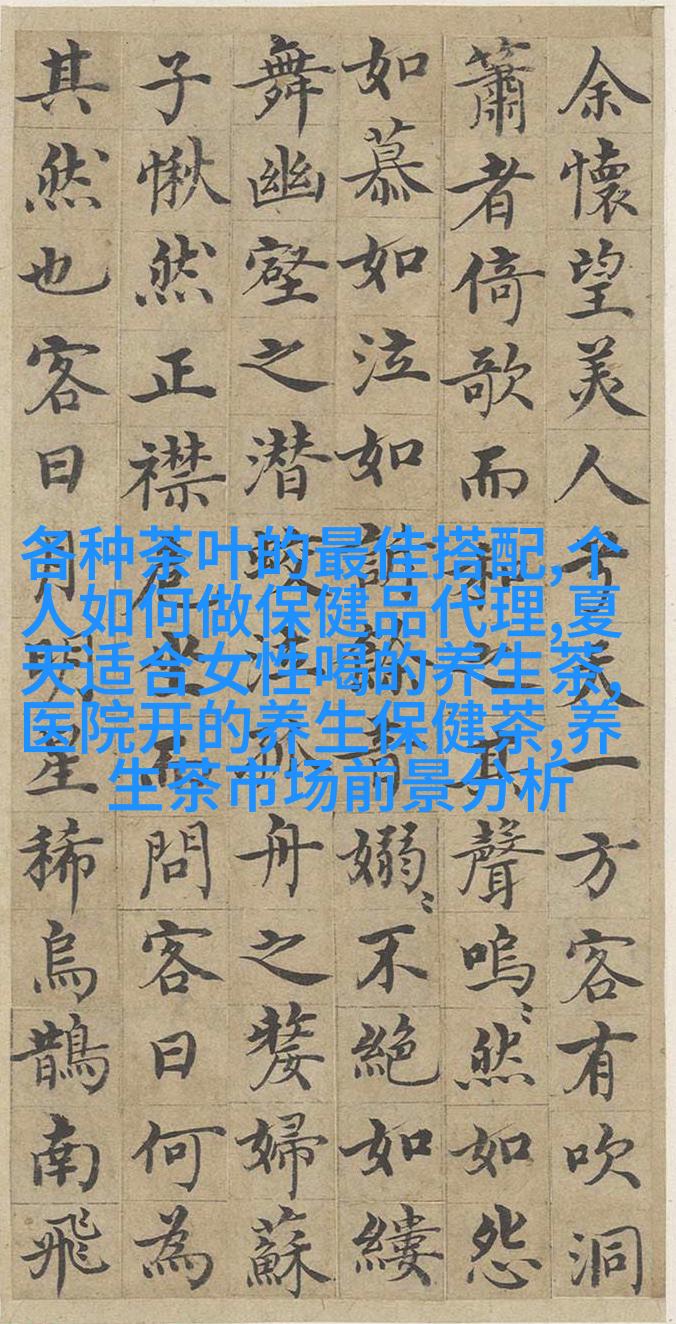 余懷望美人兮天一方客有吹洞
簫者倚歌而和之其聲嗚〻然如怨
如慕如泣如訴餘音嫋〻不絶如縷
舞幽壑之潛蛟泣孤舟之嫠婦蘇
子愀然正襟危坐而問客曰何為
其然也客曰月明星稀烏鵲南飛
各种茶叶的最佳搭配,个
人如何做保健品代理,夏
天适合女性喝的养生茶,
医院开的养生保健茶,养
生茶市场前景分析